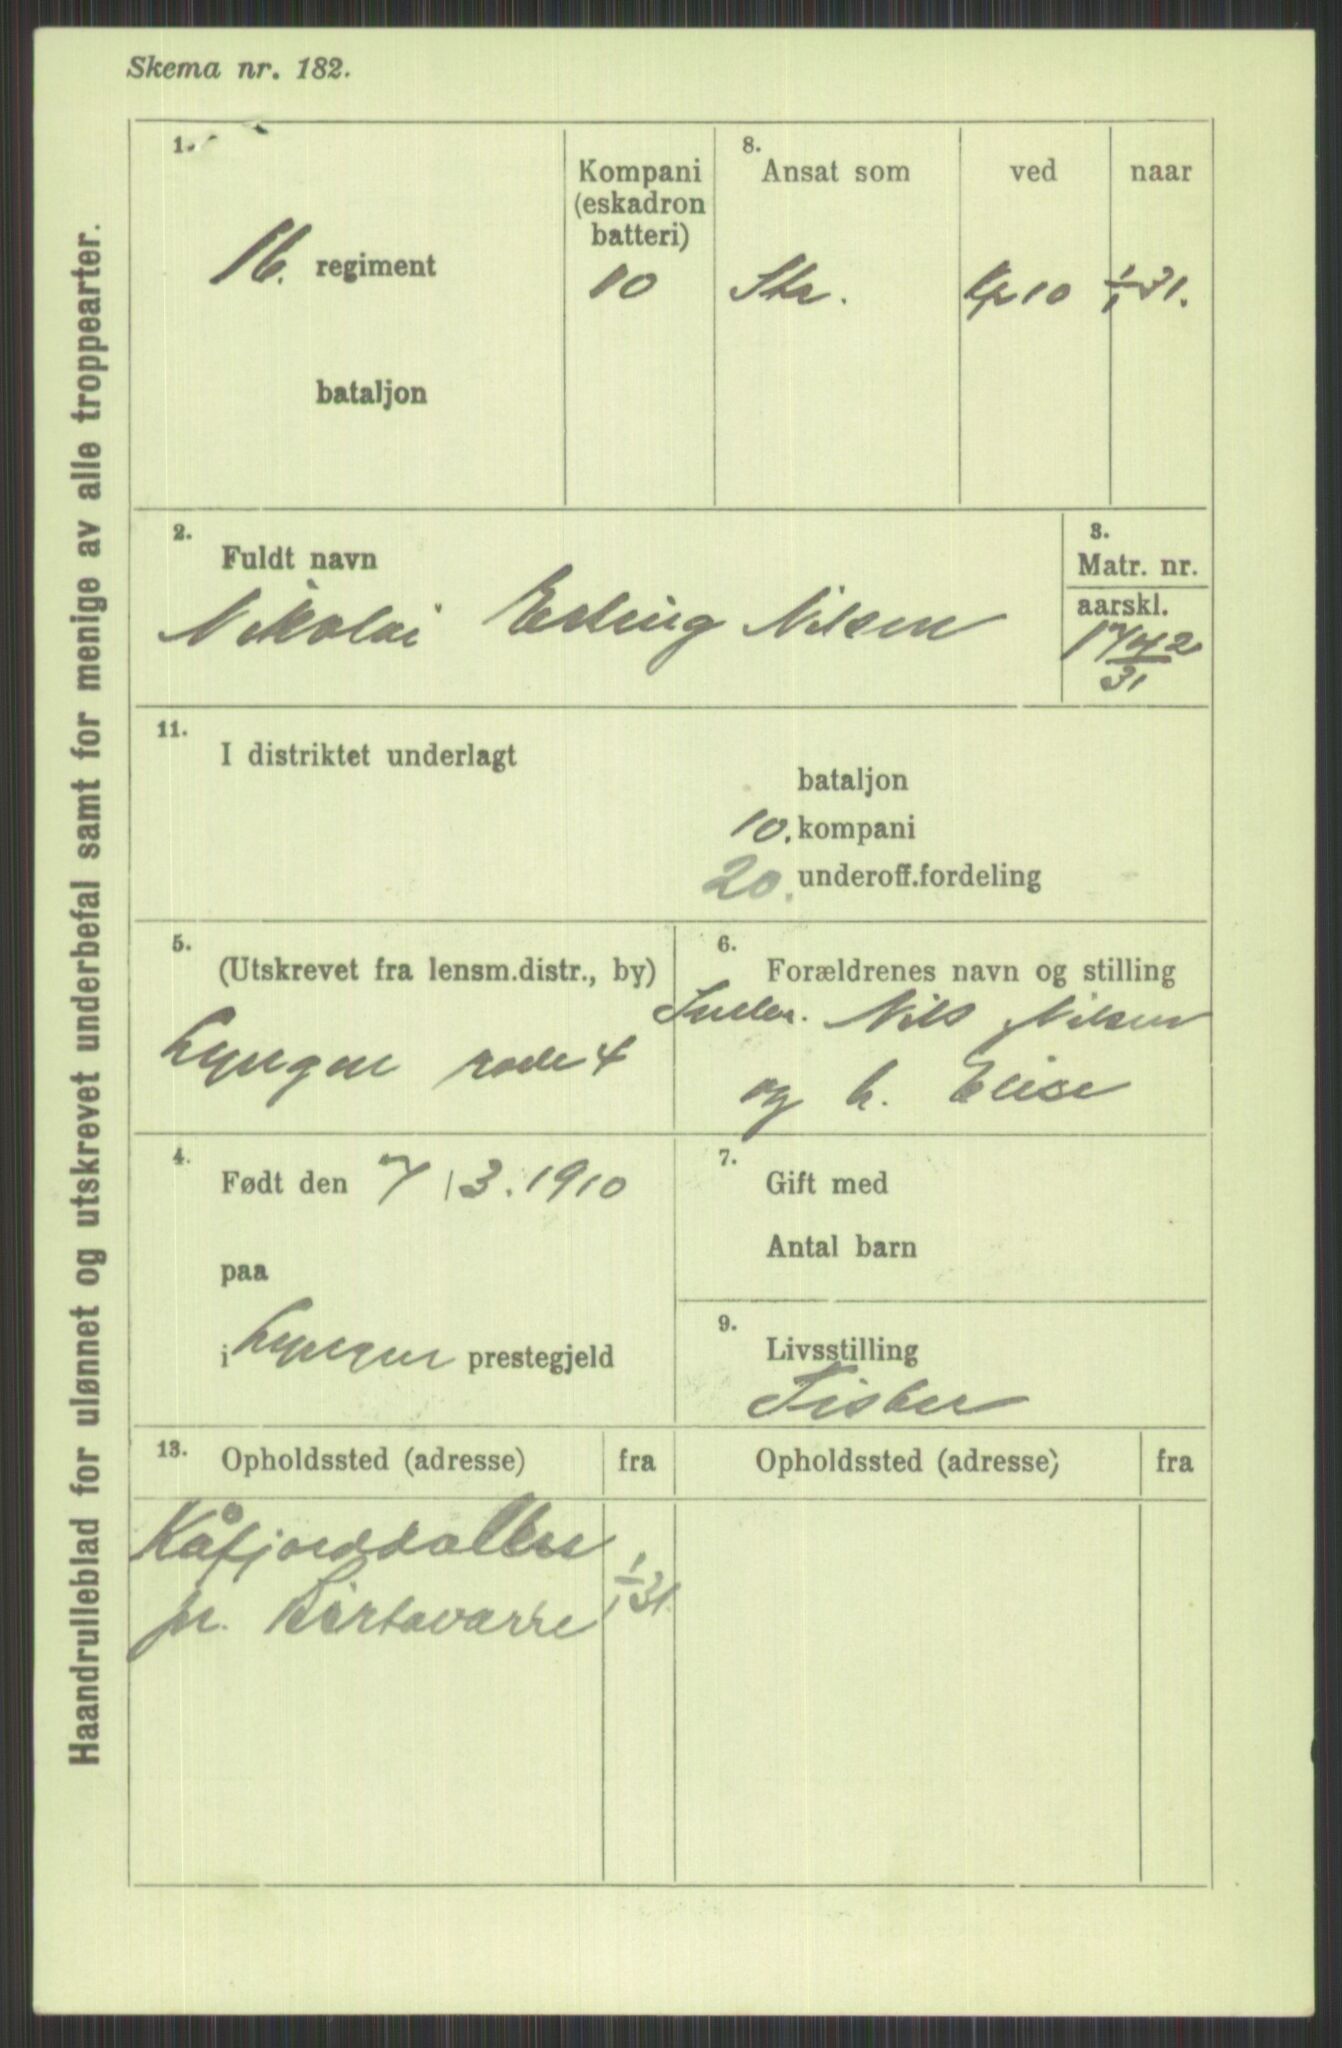 Skema nr. 182.
Haandrulleblad for ulønnet og utskrevet underbefal samt for menige av alle troppearter.
1.
16. regiment
bataljon
Kompani
(eskadron
batteri)
10
8.
Ansat som
Str.
ved
Kp 10
naar
1/1 31.
2.
Fuldt navn
Nikolai Erling Nilsen
3.
Matr. nr.
aarskl.
1742
31
11.
I distriktet underlagt
bataljon
10. kompani
20. underoff.fordeling
5.
(Utskrevet fra lensm.distr., by)
Lyngen rode 4
6.
Forældrenes navn og stilling
Nils Nilsen
og h. Elise
4.
Født den 7/3. 1910
paa
i Lyngen prestegjeld
7.
Gift med
Antal barn
9.
Livsstilling
Fisker
13.
Opholdssted (adresse)
fra
Opholdssted (adresse)
fra
Kåfjorddalen
pr. Birtavarre
1/1 31.